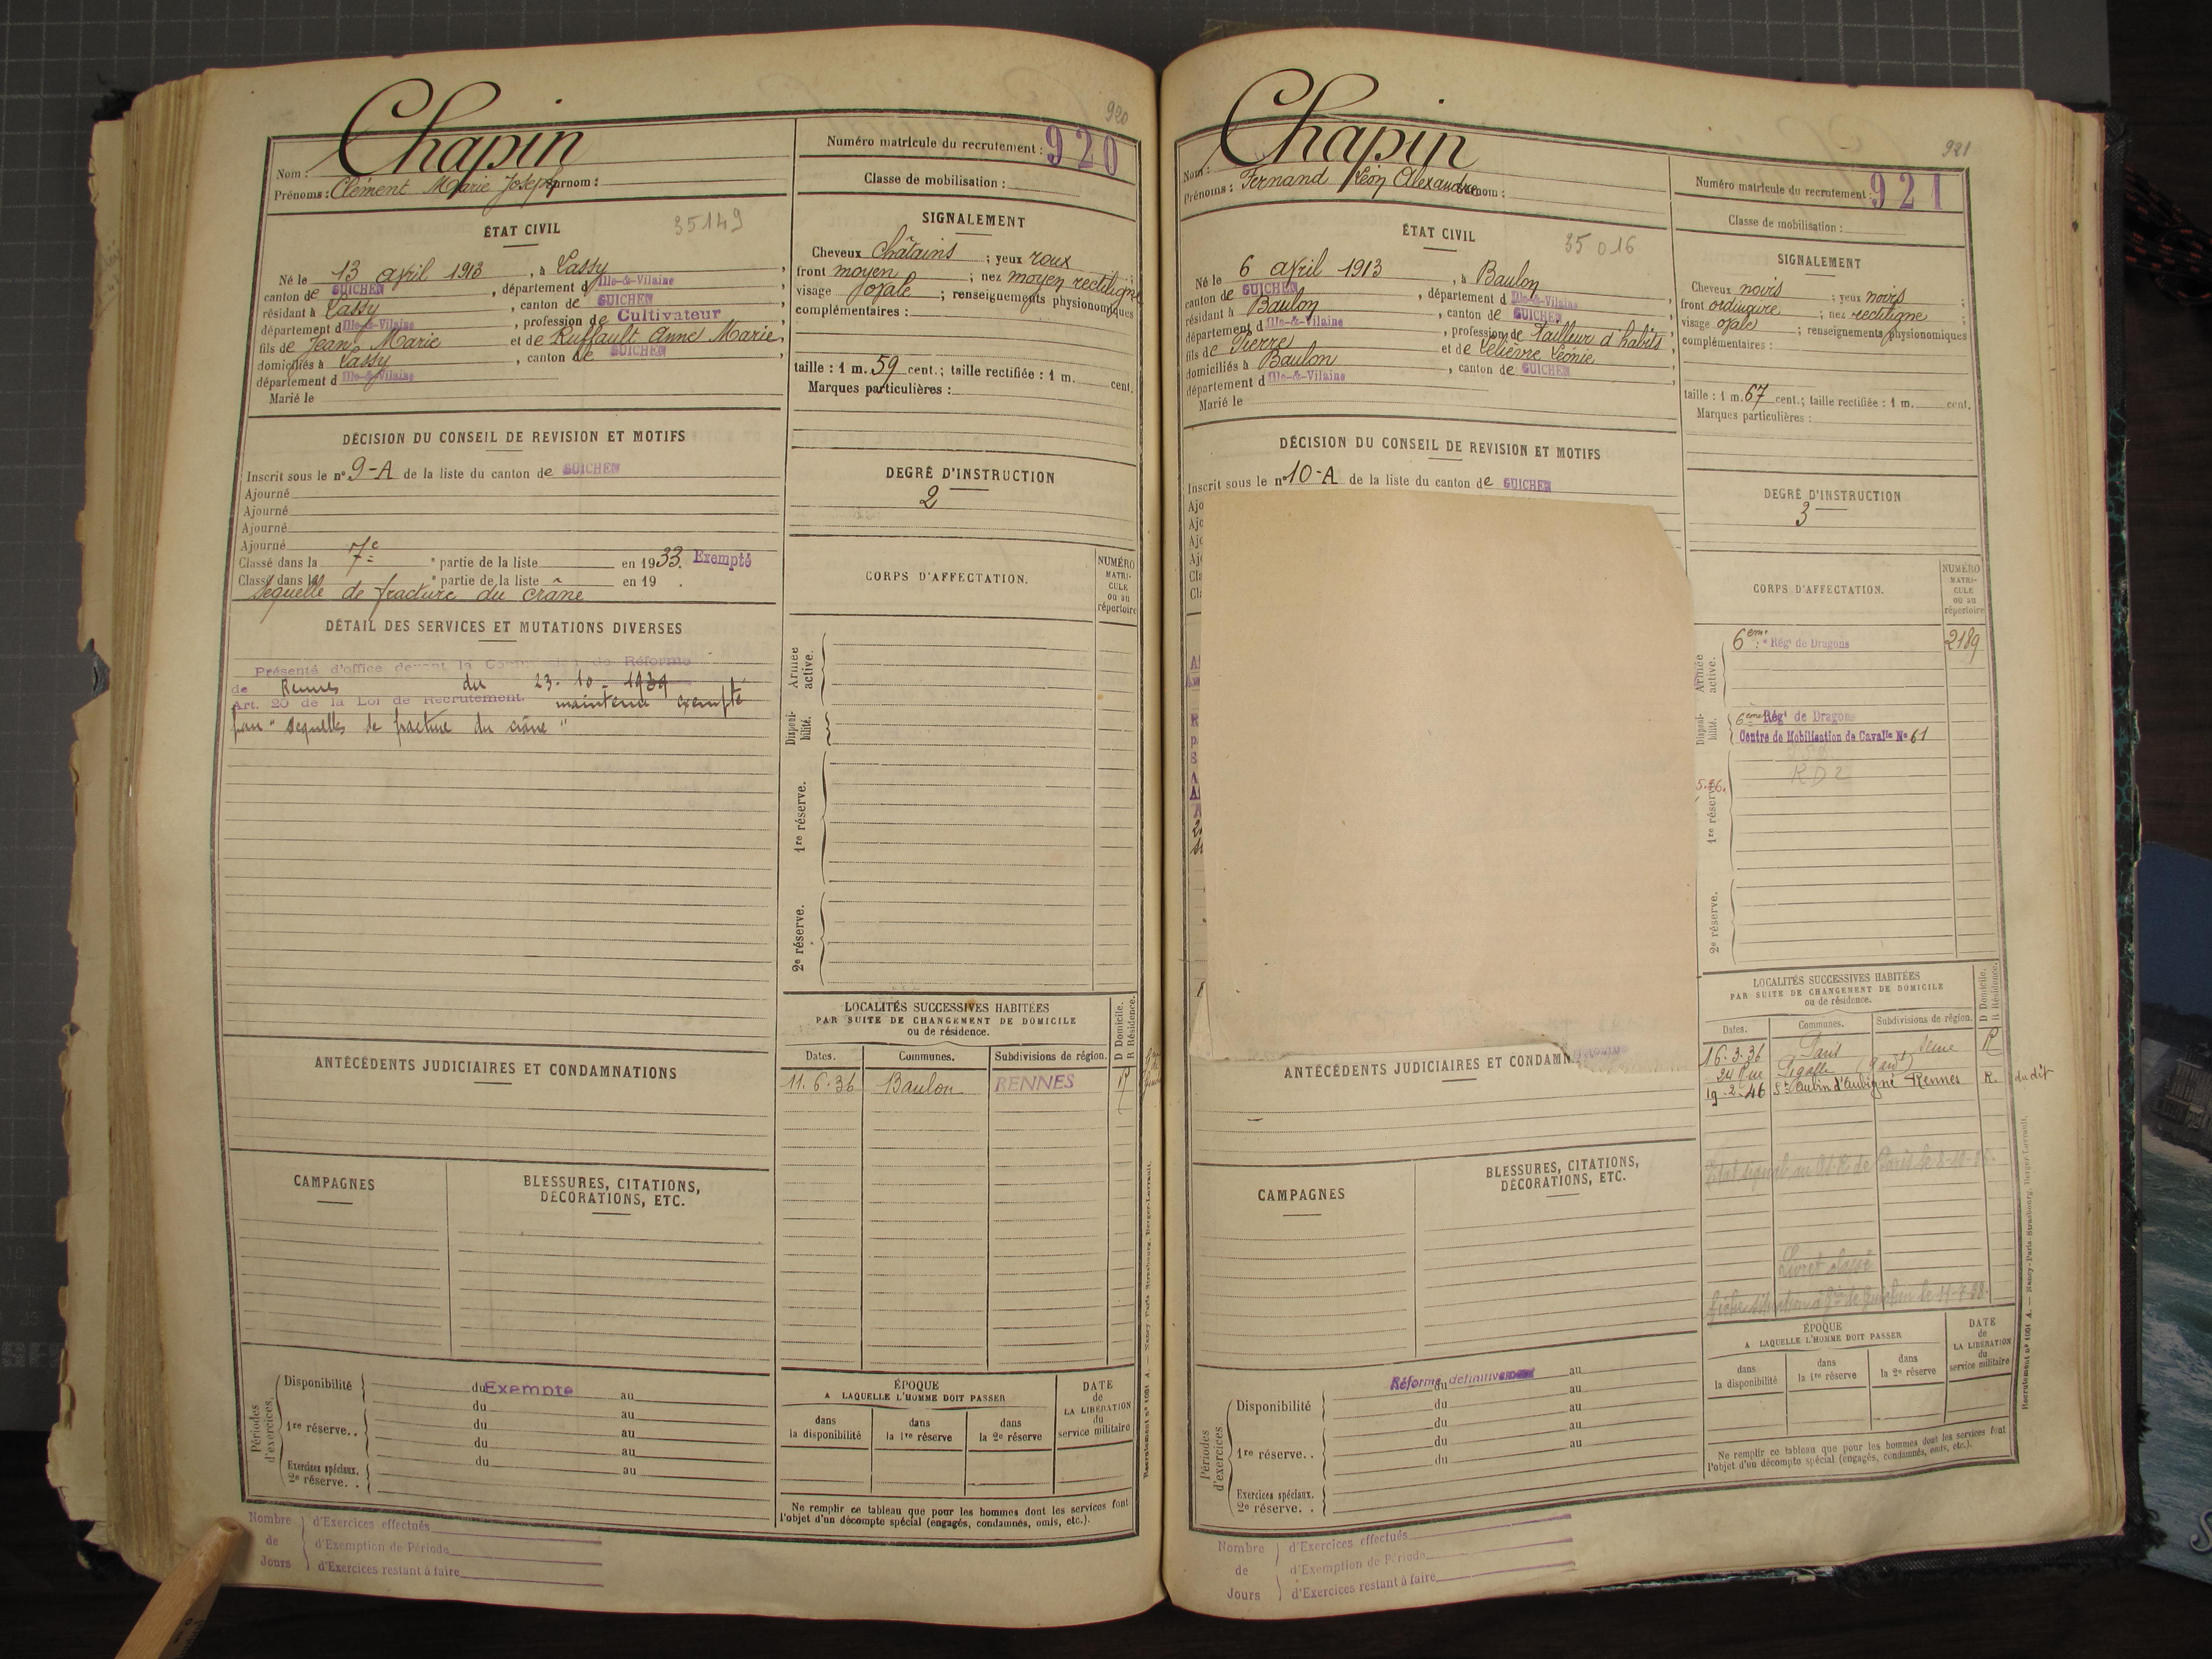 920
Chapin
Nom :
Prénoms : Clément Marie Joseph Surnom :
Numéro matricule du recrutement : 920
Classe de mobilisation :
ÉTAT CIVIL
35149
Né le 13 avril 1913, à Lassy,
canton de GUICHEN, département d Ille-&-Vilaine
résidant à Lassy, canton de GUICHEN
département d Ille-&-Vilaine, profession de Cultivateur
fils de Jean Marie et de Ruffault Anne Marie,
domiciliés à Lassy, canton de GUICHEN
département d Ille-&-Vilaine
Marié le
SIGNALEMENT
Cheveux châtains ; yeux roux ;
front moyen ; nez moyen rectiligne
visage ovale ; renseignements physionomiques
complémentaires :
taille : 1 m. 59 cent. ; taille rectifiée : 1 m. cent.
Marques particulières :
DÉCISION DU CONSEIL DE REVISION ET MOTIFS
Inscrit sous le n° 9-A de la liste du canton de GUICHEN
Ajourné
Ajourné
Ajourné
Ajourné
Classé dans la 7e partie de la liste en 1933. Exempté
Classé dans la partie de la liste en 19 .
Séquelle de fracture du crâne
DEGRÉ D'INSTRUCTION
2
DÉTAIL DES SERVICES ET MUTATIONS DIVERSES
Présenté d'office devant la Commission de Réforme
de Rennes du 23-10-1939
Art. 20 de la Loi de Recrutement. maintenu exempté
pour "séquelles de fracture du crâne"
CORPS D'AFFECTATION.
NUMÉRO
MATRI-
CULE
ou au
répertoire
Armée
active.
Disponi-
bilité.
1re réserve.
2e réserve.
LOCALITÉS SUCCESSIVES HABITÉES
PAR SUITE DE CHANGEMENT DE DOMICILE
ou de résidence.
D Domicile.
R Résidence.
Dates. Communes. Subdivisions de région.
11.6.36 Baulon RENNES R
ANTÉCÉDENTS JUDICIAIRES ET CONDAMNATIONS
CAMPAGNES
BLESSURES, CITATIONS,
DÉCORATIONS, ETC.
Périodes
d'exercices.
Disponibilité du Exempté au
du au
1re réserve. . du au
du au
Exercices spéciaux. du au
2e réserve. .
ÉPOQUE
A LAQUELLE L'HOMME DOIT PASSER
dans
la disponibilité
dans
la 1re réserve
dans
la 2e réserve
DATE
de
LA LIBÉRATION
du
service militaire
Ne remplir ce tableau que pour les hommes dont les services font
l'objet d'un décompte spécial (engagés, condamnés, omis, etc.).
Recrutement n° 1051 A. — Nancy-Paris-Strasbourg, Berger-Levrault.
Nombre
de
Jours
d'Exercices effectués
d'Exemption de Période
d'Exercices restant à faire
921
Chapin
Nom :
Prénoms : Fernand Léon Alexandre Surnom :
Numéro matricule du recrutement : 921
Classe de mobilisation :
ÉTAT CIVIL
35016
Né le 6 avril 1913, à Baulon,
canton de GUICHEN, département d Ille-&-Vilaine
résidant à Baulon, canton de GUICHEN
département d Ille-&-Vilaine, profession de tailleur d'habits,
fils de Pierre et de Lelièvre Léonie,
domiciliés à Baulon, canton de GUICHEN
département d Ille-&-Vilaine
Marié le
SIGNALEMENT
Cheveux noirs ; yeux noirs ;
front ordinaire ; nez rectiligne ;
visage ovale ; renseignements physionomiques
complémentaires :
taille : 1 m. 67 cent. ; taille rectifiée : 1 m. cent.
Marques particulières :
DÉCISION DU CONSEIL DE REVISION ET MOTIFS
Inscrit sous le n° 10-A de la liste du canton de GUICHEN
DEGRÉ D'INSTRUCTION
3
CORPS D'AFFECTATION.
NUMÉRO
MATRI-
CULE
ou au
répertoire
Armée
active.
6eme Régt de Dragons 2189
Disponi-
bilité.
6eme Régt de Dragons
Centre de Mobilisation de Cavalle No 61
RD2
1re réserve.
2e réserve.
LOCALITÉS SUCCESSIVES HABITÉES
PAR SUITE DE CHANGEMENT DE DOMICILE
ou de résidence.
D Domicile.
R Résidence.
Dates. Communes. Subdivisions de région.
16.3.36 Paris Seine R
24 Rue Pigalle
19-2-46 St Aubin d'Aubigné Rennes R. du dit
ANTÉCÉDENTS JUDICIAIRES ET CONDAMN
Livret classé
CAMPAGNES
BLESSURES, CITATIONS,
DÉCORATIONS, ETC.
Périodes
d'exercices
Réformé définitivement
Disponibilité du au
du au
du au
1re réserve. . du au
du au
Exercices spéciaux.
2e réserve. .
ÉPOQUE
A LAQUELLE L'HOMME DOIT PASSER
dans
la disponibilité
dans
la 1re réserve
dans
la 2e réserve
DATE
de
LA LIBÉRATION
du
service militaire
Ne remplir ce tableau que pour les hommes dont les services font
l'objet d'un décompte spécial (engagés, condamnés, omis, etc.).
Recrutement n° 1051 A. — Nancy-Paris-Strasbourg, Berger-Levrault.
Nombre
de
Jours
d'Exercices effectués
d'Exemption de Période
d'Exercices restant à faire